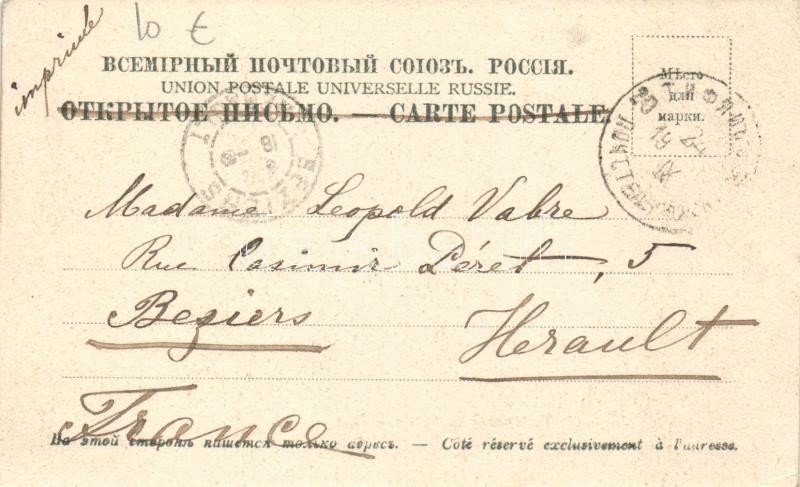 imprimée
10 €
ВСЕМІРНЫЙ ПОЧТОВЫЙ СОЮЗЪ. РОССІЯ.
UNION POSTALE UNIVERSELLE RUSSIE.
ОТКРЫТОЕ ПИСЬМО. — CARTE POSTALE.
Мѣсто
для
марки.
BEZIERS
Madame Leopold Vabre
Rue Casimir Péret, 5
Beziers Herault
France
На этой сторонѣ пишется только адресъ. — Côté réservé exclusivement à l'adresse.